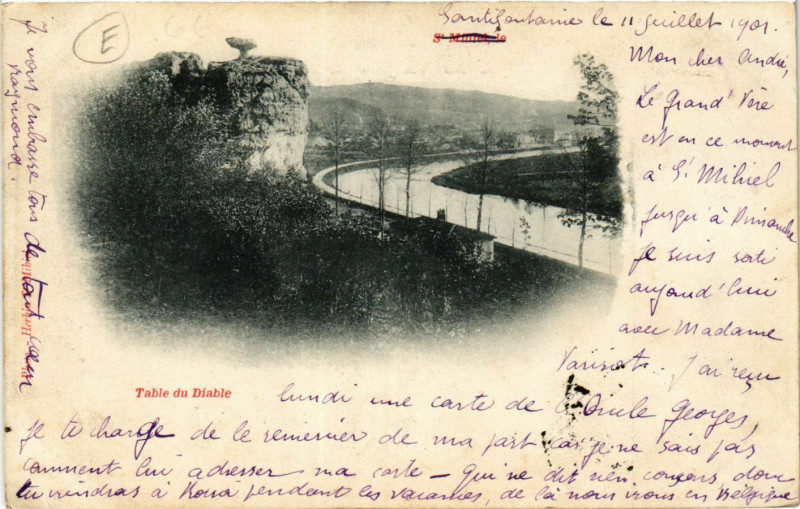 Santifontaine le 11 juillet 1901.
St Mihiel, le
Mon cher André,
Le Grand'Père
est en ce moment
à St Mihiel
jusqu'à Dimanche
je suis sorti
aujourd'hui
avec Madame
Varisot. J'ai reçu
lundi une carte de l'Oncle Georges,
je te charge de le remercier de ma part car je ne sais pas
comment lui adresser ma carte – qui ne dit rien consens donc
tu viendras à pendant les vacances, de là nous irons en Belgique
Je vous embrasse tous de tout cœur
raymond.
Table du Diable
E